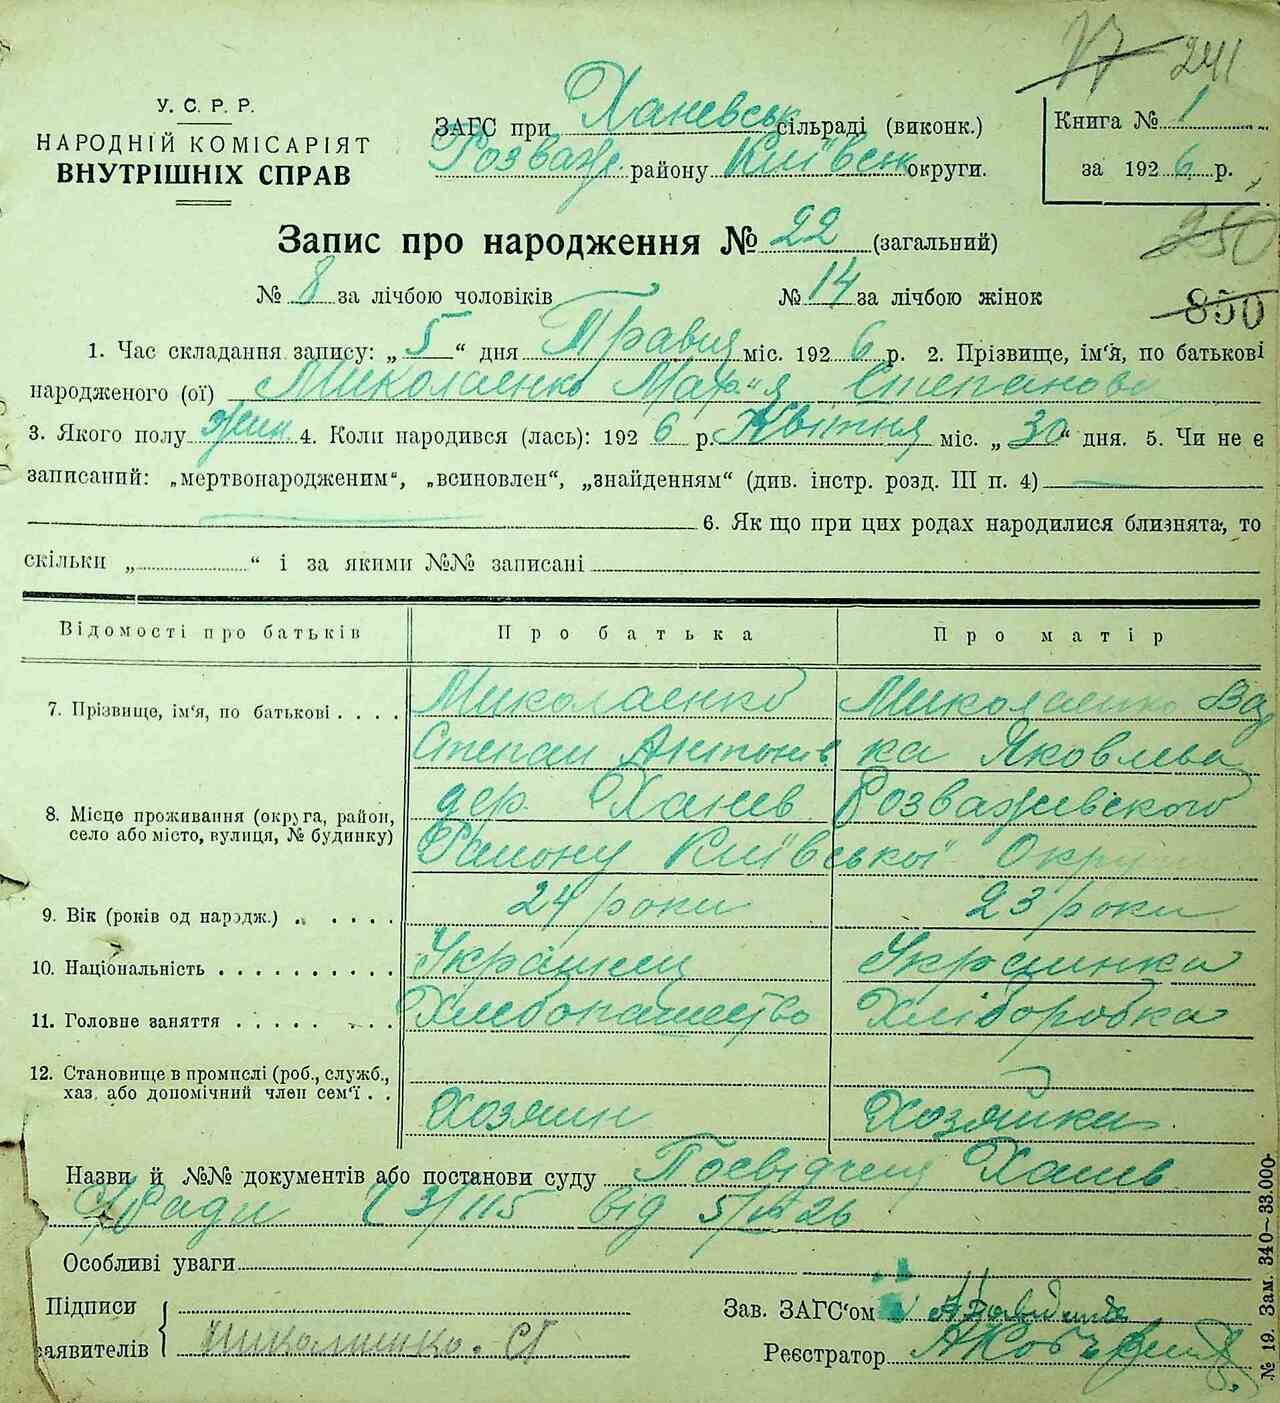 77 241
У. С. Р. Р.
НАРОДНІЙ КОМІСАРІЯТ
ВНУТРІШНІХ СПРАВ
ЗАГС при Ханевськ сільраді (виконк.)
Розваж. району Київськ округи.
Книга № 1
за 1926 р.
250
Запис про народження № 22 (загальний)
№ 8 за лічбою чоловіків № 14 за лічбою жінок
850
1. Час складання запису: „5“ дня Травня міс. 1926 р. 2. Прізвище, ім'я, по батькові
народженого (ої) Миколаенко Мар'я Степанов
3. Якого полу жин. 4. Коли народився (лась): 1926 р. Квітня міс. „30“ дня. 5. Чи не є
записаний: „мертвонародженим“, „всиновлен“, „знайденням“ (див. інстр. розд. III п. 4)
6. Як що при цих родах народилися близнята, то
скільки „ “ і за якими №№ записані
Відомості про батьків Про батька Про матір
7. Прізвище, ім'я, по батькові Миколаенко Степан Антонів Миколаенко Яковлева
8. Місце проживання (округа, район,
село або місто, вулиця, № будинку)
дер. Ханев Розважевского
Району Київської Округи
9. Вік (років од нарздж.) 24 роки 23 роки
10. Національність Украинец Украинка
11. Головне заняття Хлебопашество Хліборобка
12. Становище в промислі (роб., служб.,
хаз. або допомічний член сем'ї
Хозяин Хозяйка
Назви й №№ документів або постанови суду Посвідчен Ханев
С/Ради 3/115 від 5/V 26
Особливі уваги
Підписи
заявителів Миколаенко. СТ
Зав. ЗАГС'ом
Реєстратор
№ 19. Зам. 340—33.000.